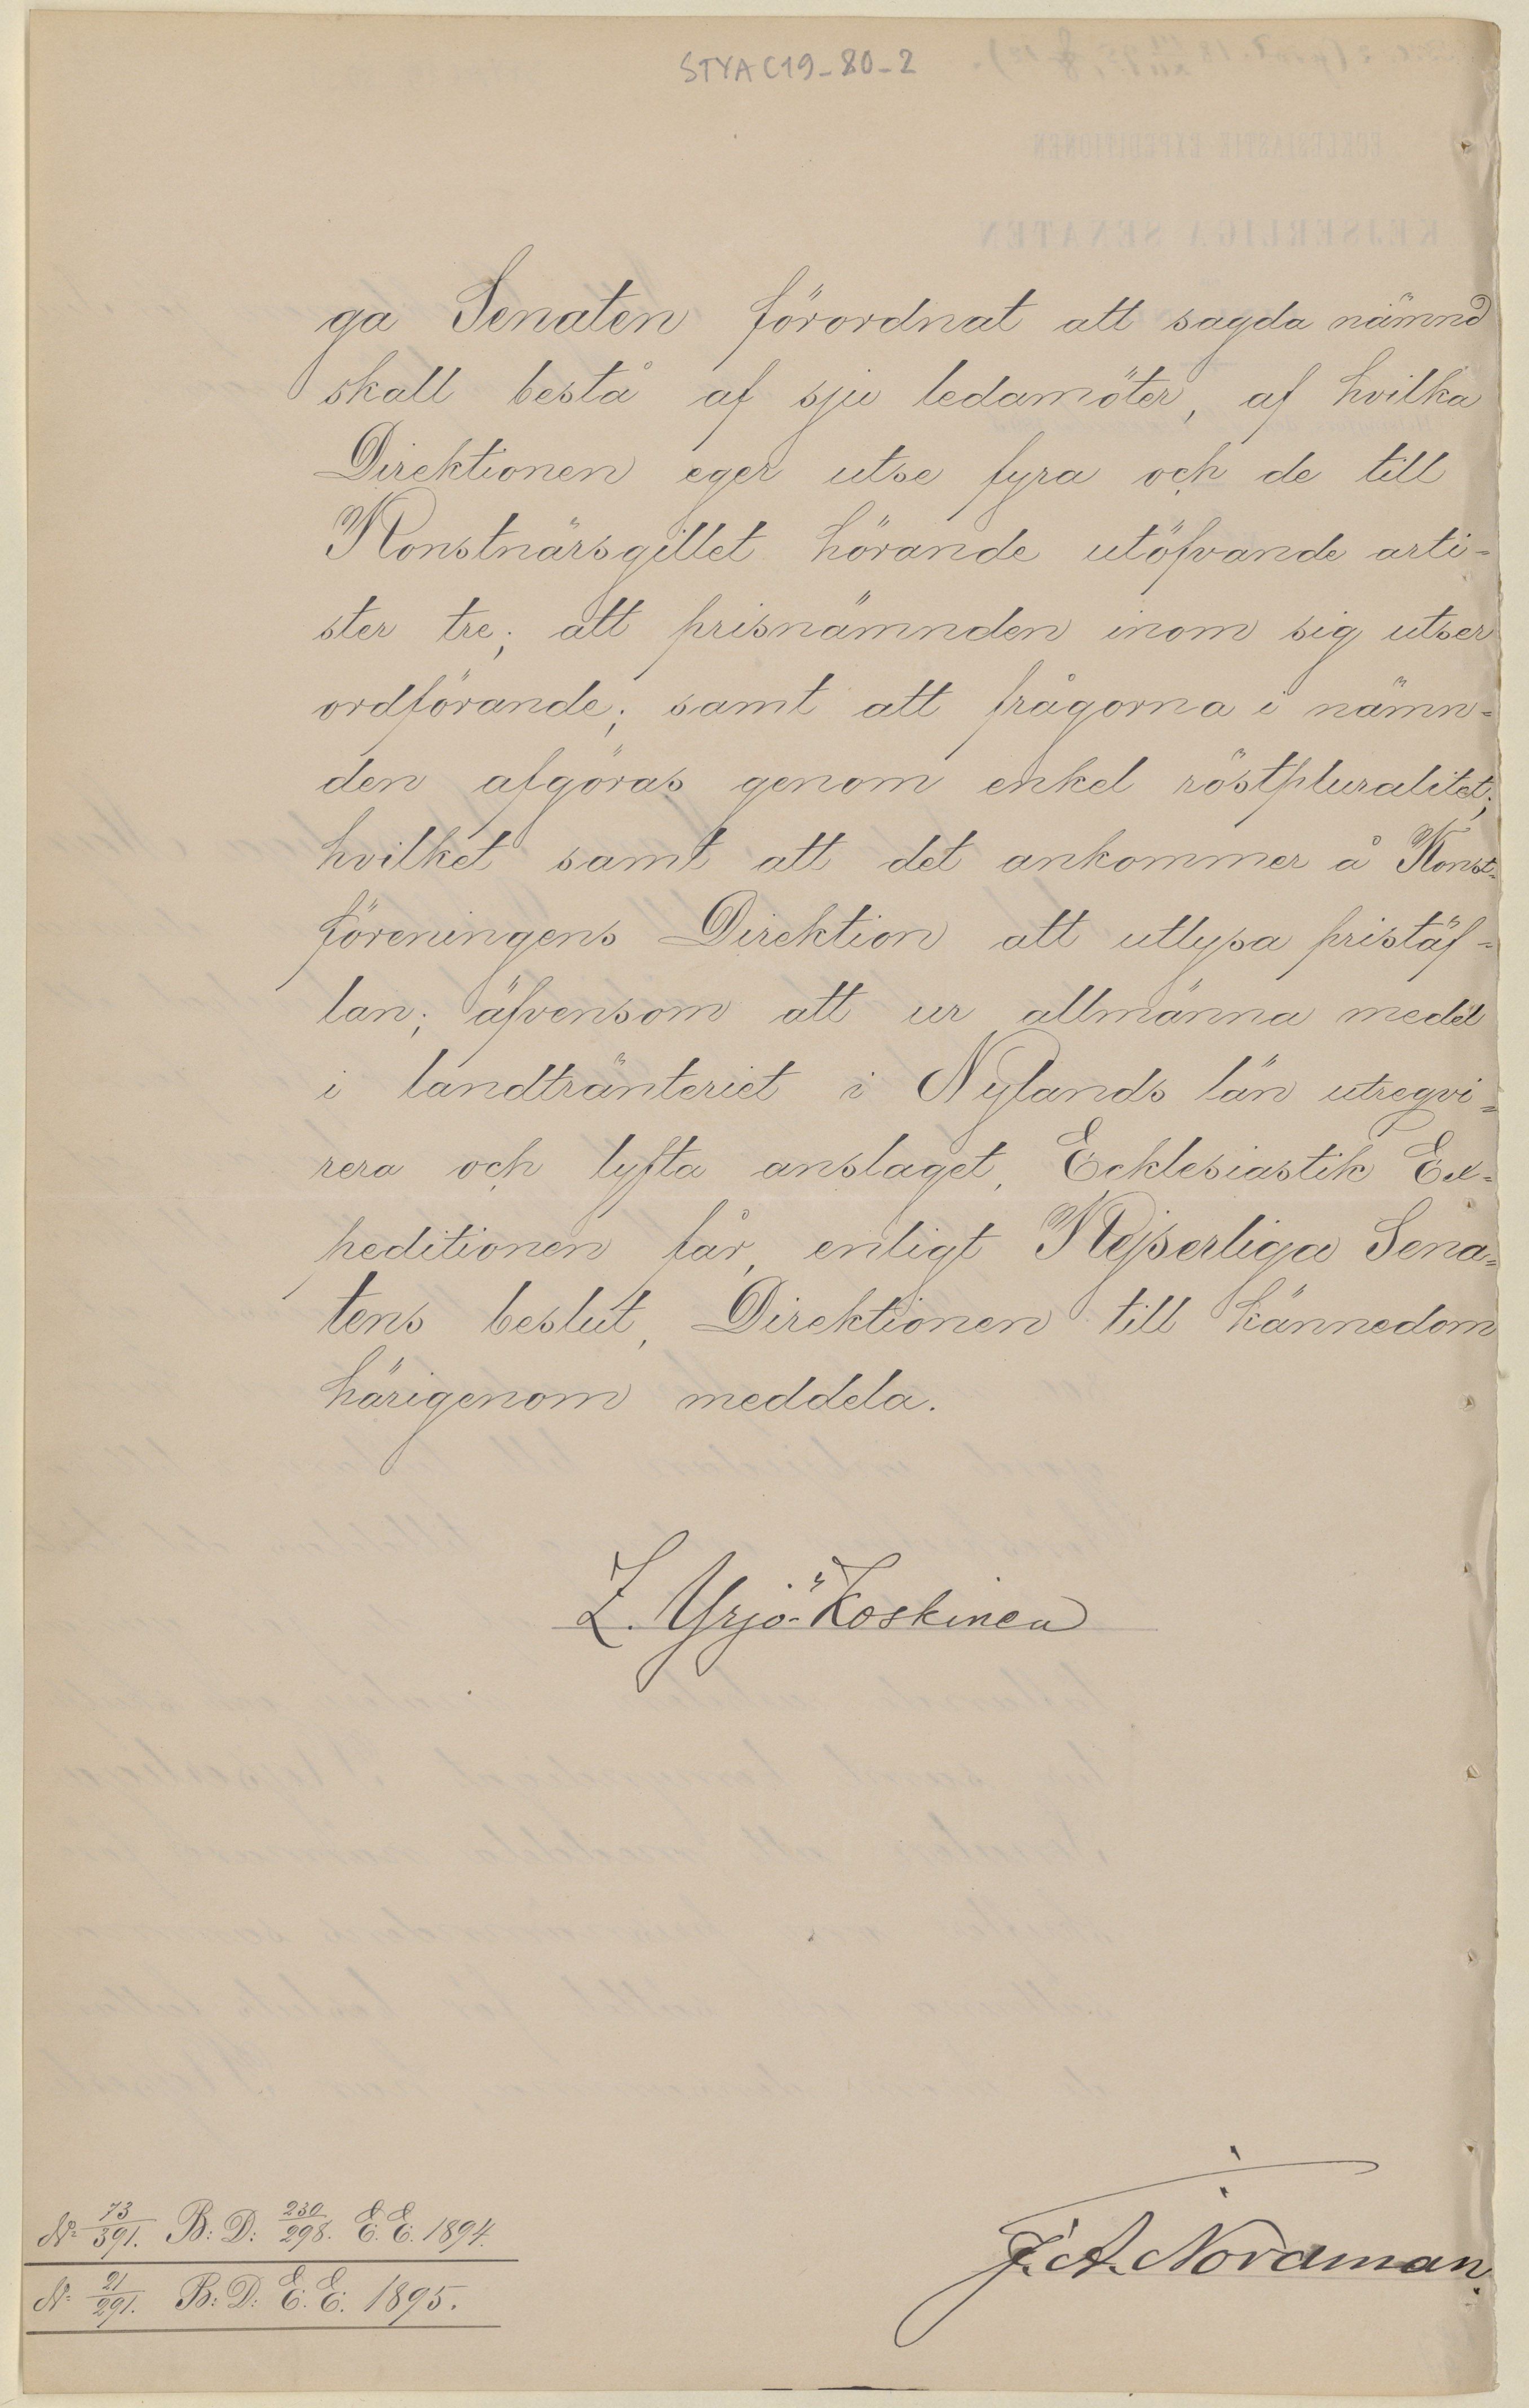 STYA C19-80-2
ga Senaten förordnat att sagda nämnd
skall bestå af sju ledamöter, af hvilka
Direktionen eger utse fyra och de till
Konstnärsgillet hörande utöfvande arti-
ster tre; att prisnämnden inom sig utser
ordförande; samt att frågorna i nämn-
den afgöras genom enkel röstpluralitet;
hvilket samt att det ankommer å Konst-
föreningens Direktion att utlysa pristäf-
lan; äfvensom att ur allmänna medel
i landtränteriet i Nylands län utreqvi-
rera och lyfta anslaget, Ecklesiastik Ex-
peditionen får, enligt Kejserliga Sena-
tens beslut, Direktionen till kännedom
härigenom meddela.
Z. Yrjö-Koskinen
No 73/391. B: D: 230/298. E. E. 1894.
No 21/291. B: D: E. E. 1895.
F. A. Nordman.